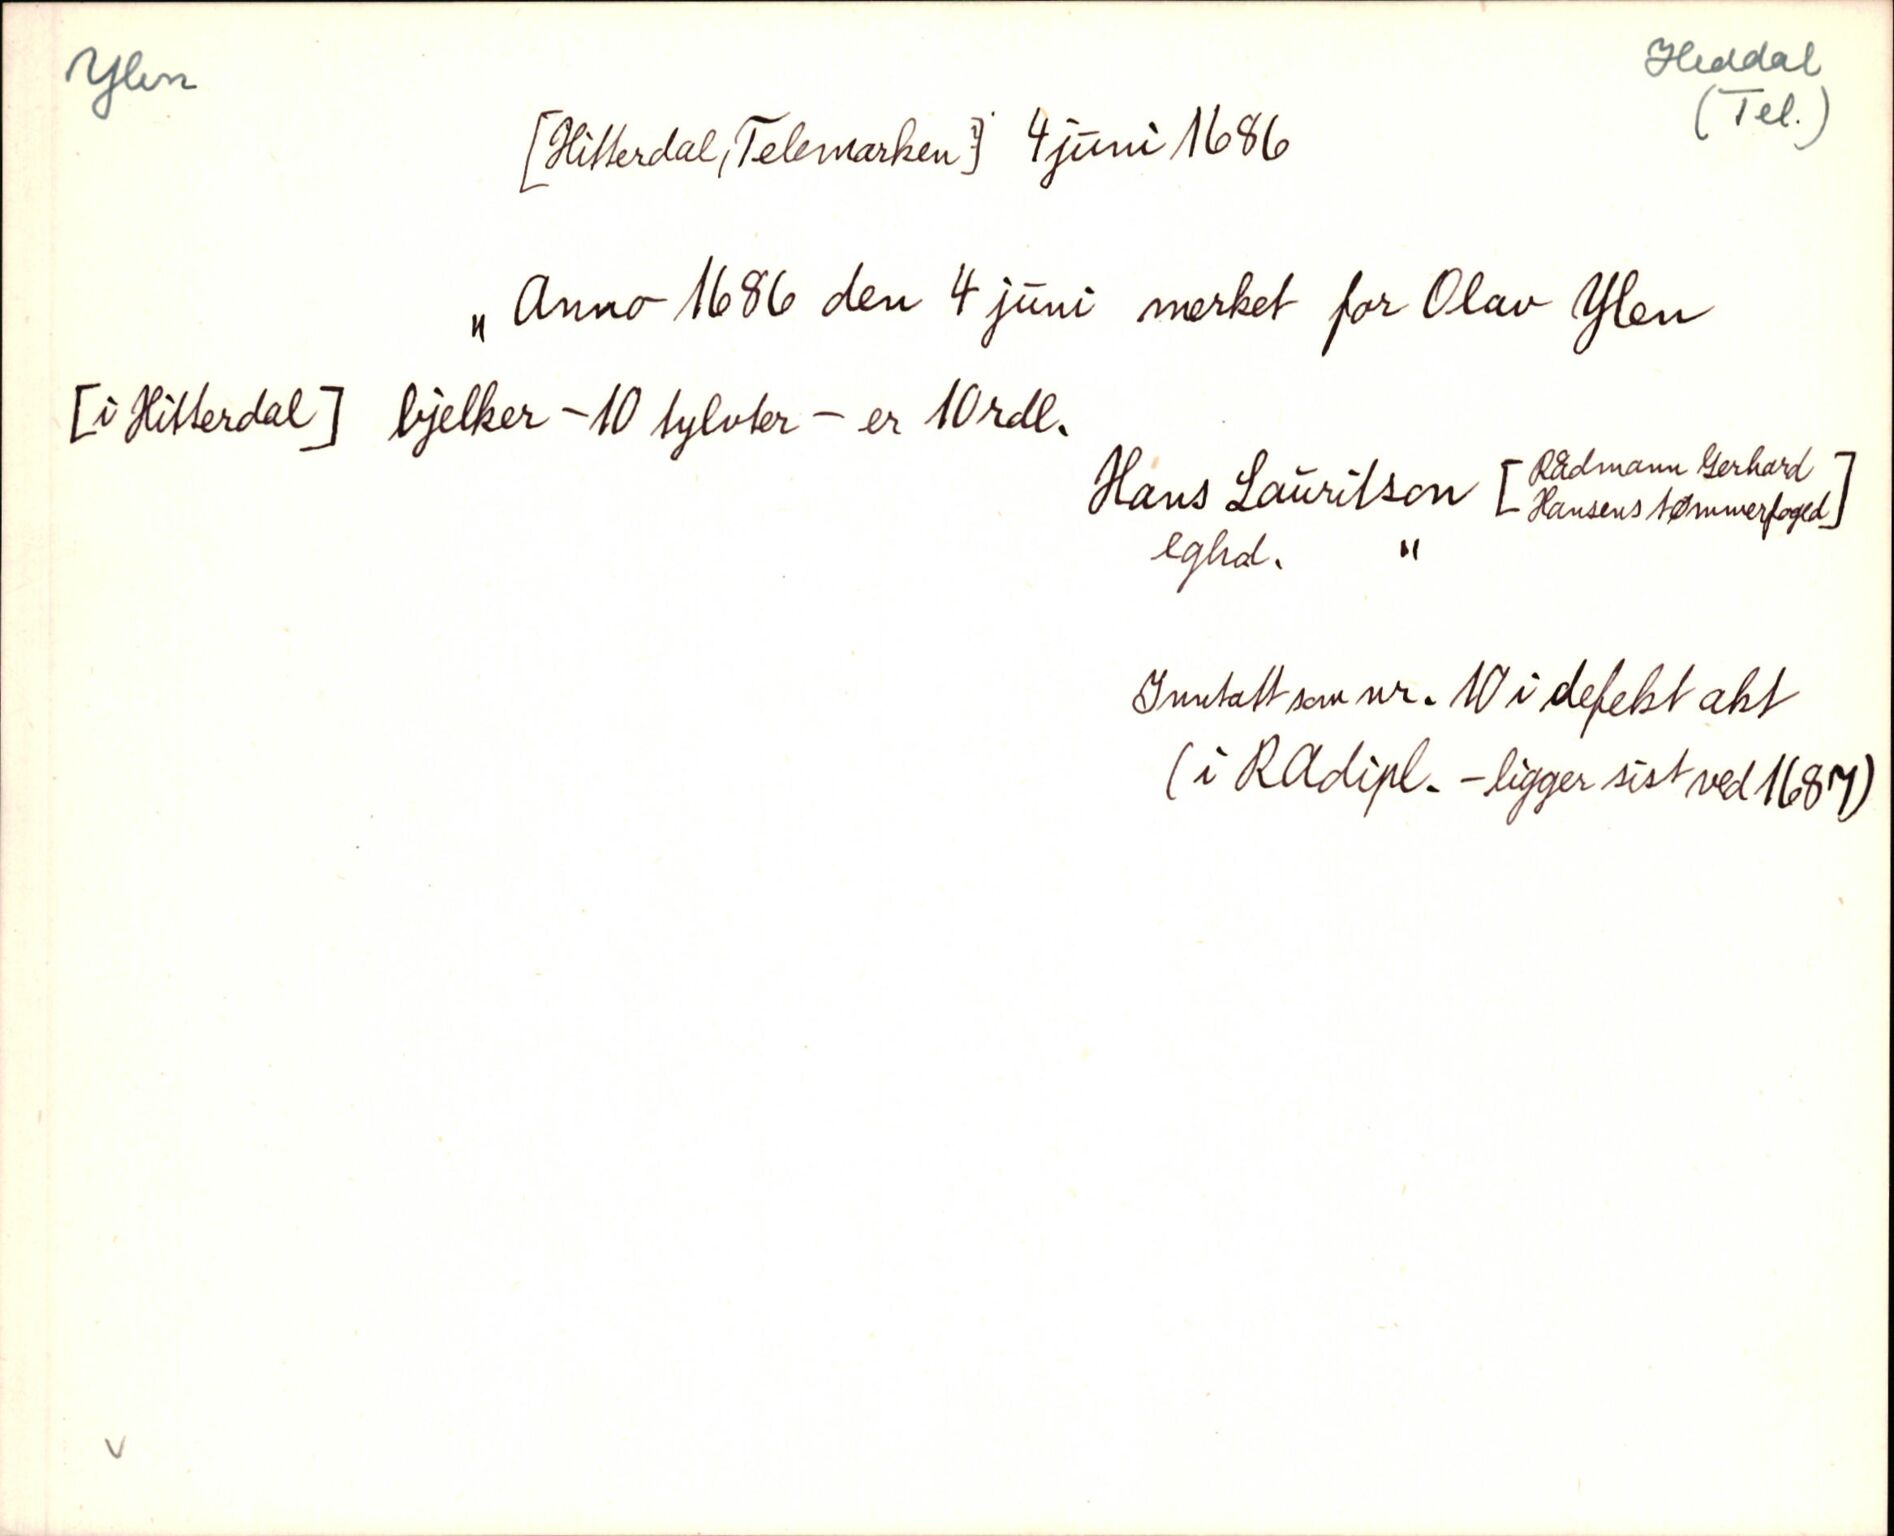 Ylen
Heddal
(Tel.)
[Hitterdal, Telemarken?] 4 juni 1686
„ Anno 1686 den 4 juni merket for Olav Ylen
[i Hitterdal] bjelker – 10 tylvter – er 10 rdl.
Hans Lauritson [Rådmann Gerhard
Hansens tømmerfoged]
eghd. "
Inntatt som nr. 10 i defekt akt
(i RAdipl. – ligger sist ved 1687)
v